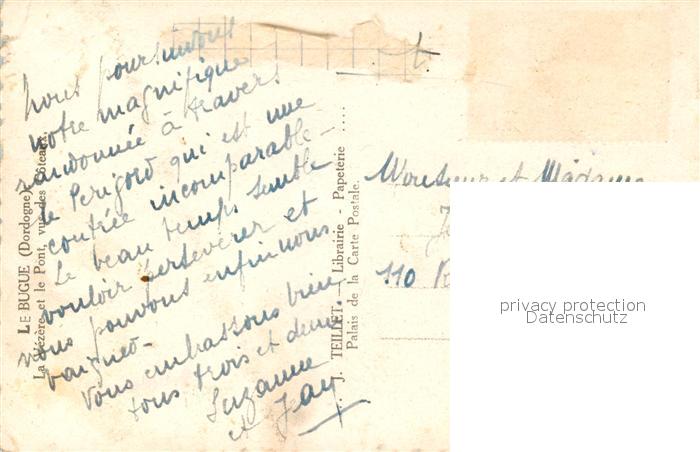 Nous poursuivons
notre magnifique
randonnée à travers
le Périgord qui est une
contrée incomparable -
Le beau temps semble
vouloir persévérer et
nous pouvons enfin nous
baigner -
Vous embrassons bien
tous trois et demi.
Suzanne
et Jean
LE BUGUE (Dordogne)
La Vézère et le Pont, vue des Côteaux
J. TEILLET. — Librairie - Papeterie ....
Palais de la Carte Postale.
Monsieur et Madame
110
privacy protection
Datenschutz